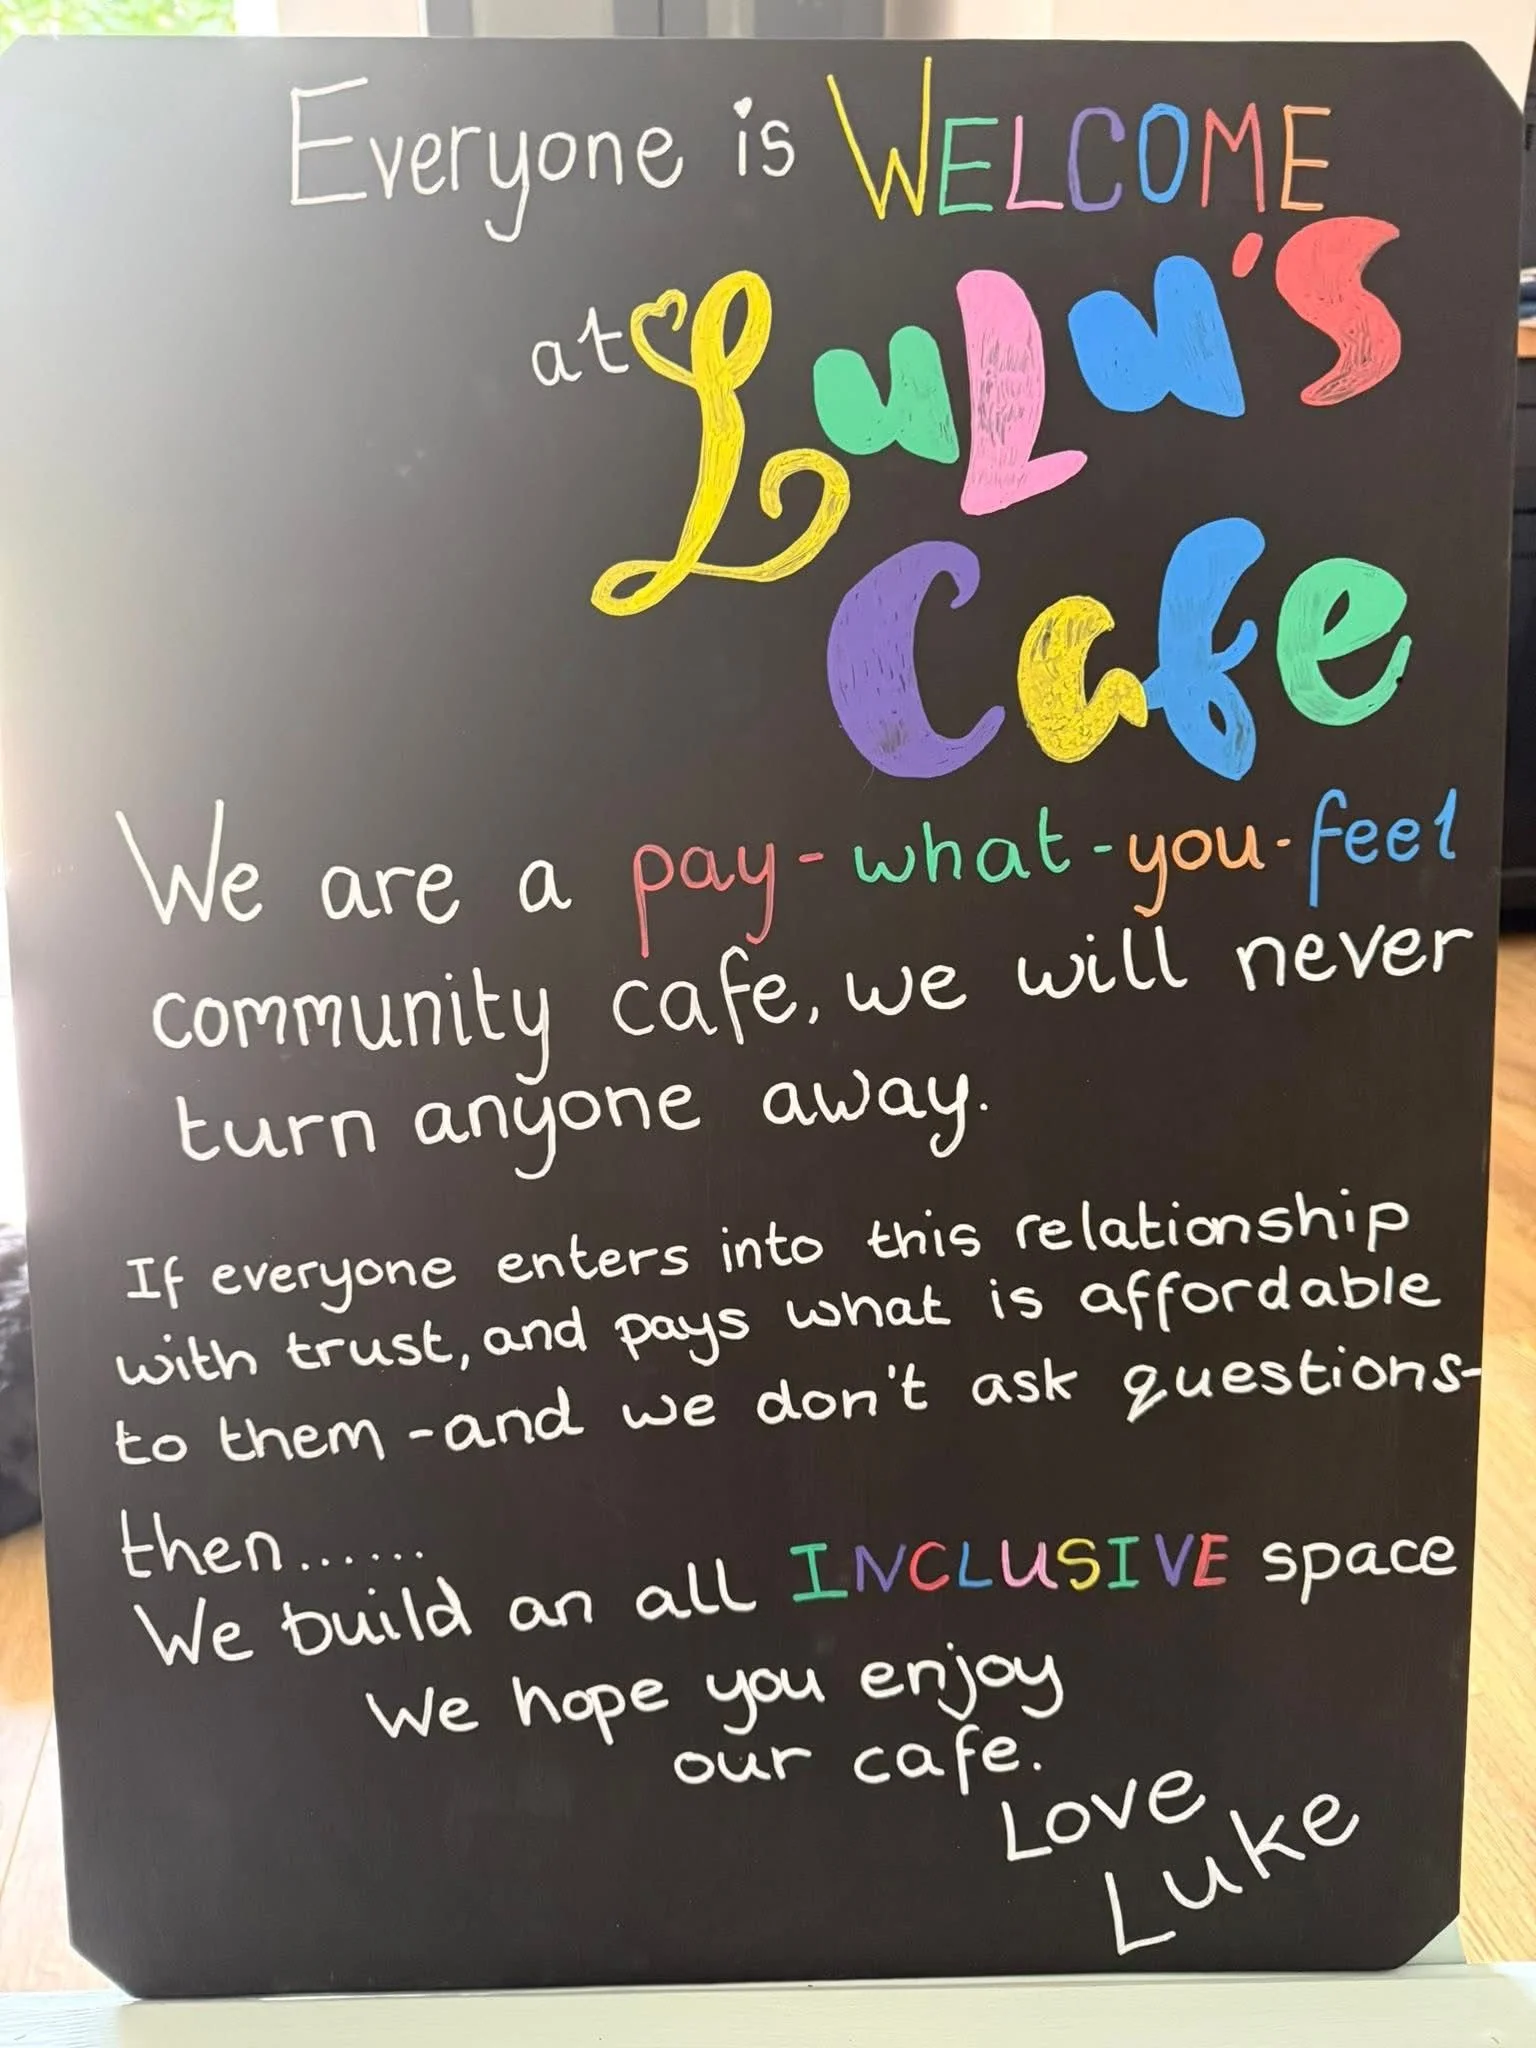 Everyone is WELCOME
at LuLu's
Cafe
We are a pay-what-you-feel
community cafe, we will never
turn anyone away.
If everyone enters into this relationship
with trust, and pays what is affordable
to them - and we don't ask questions-
then......
We build an all INCLUSIVE space
We hope you enjoy
our cafe.
Love
Luke